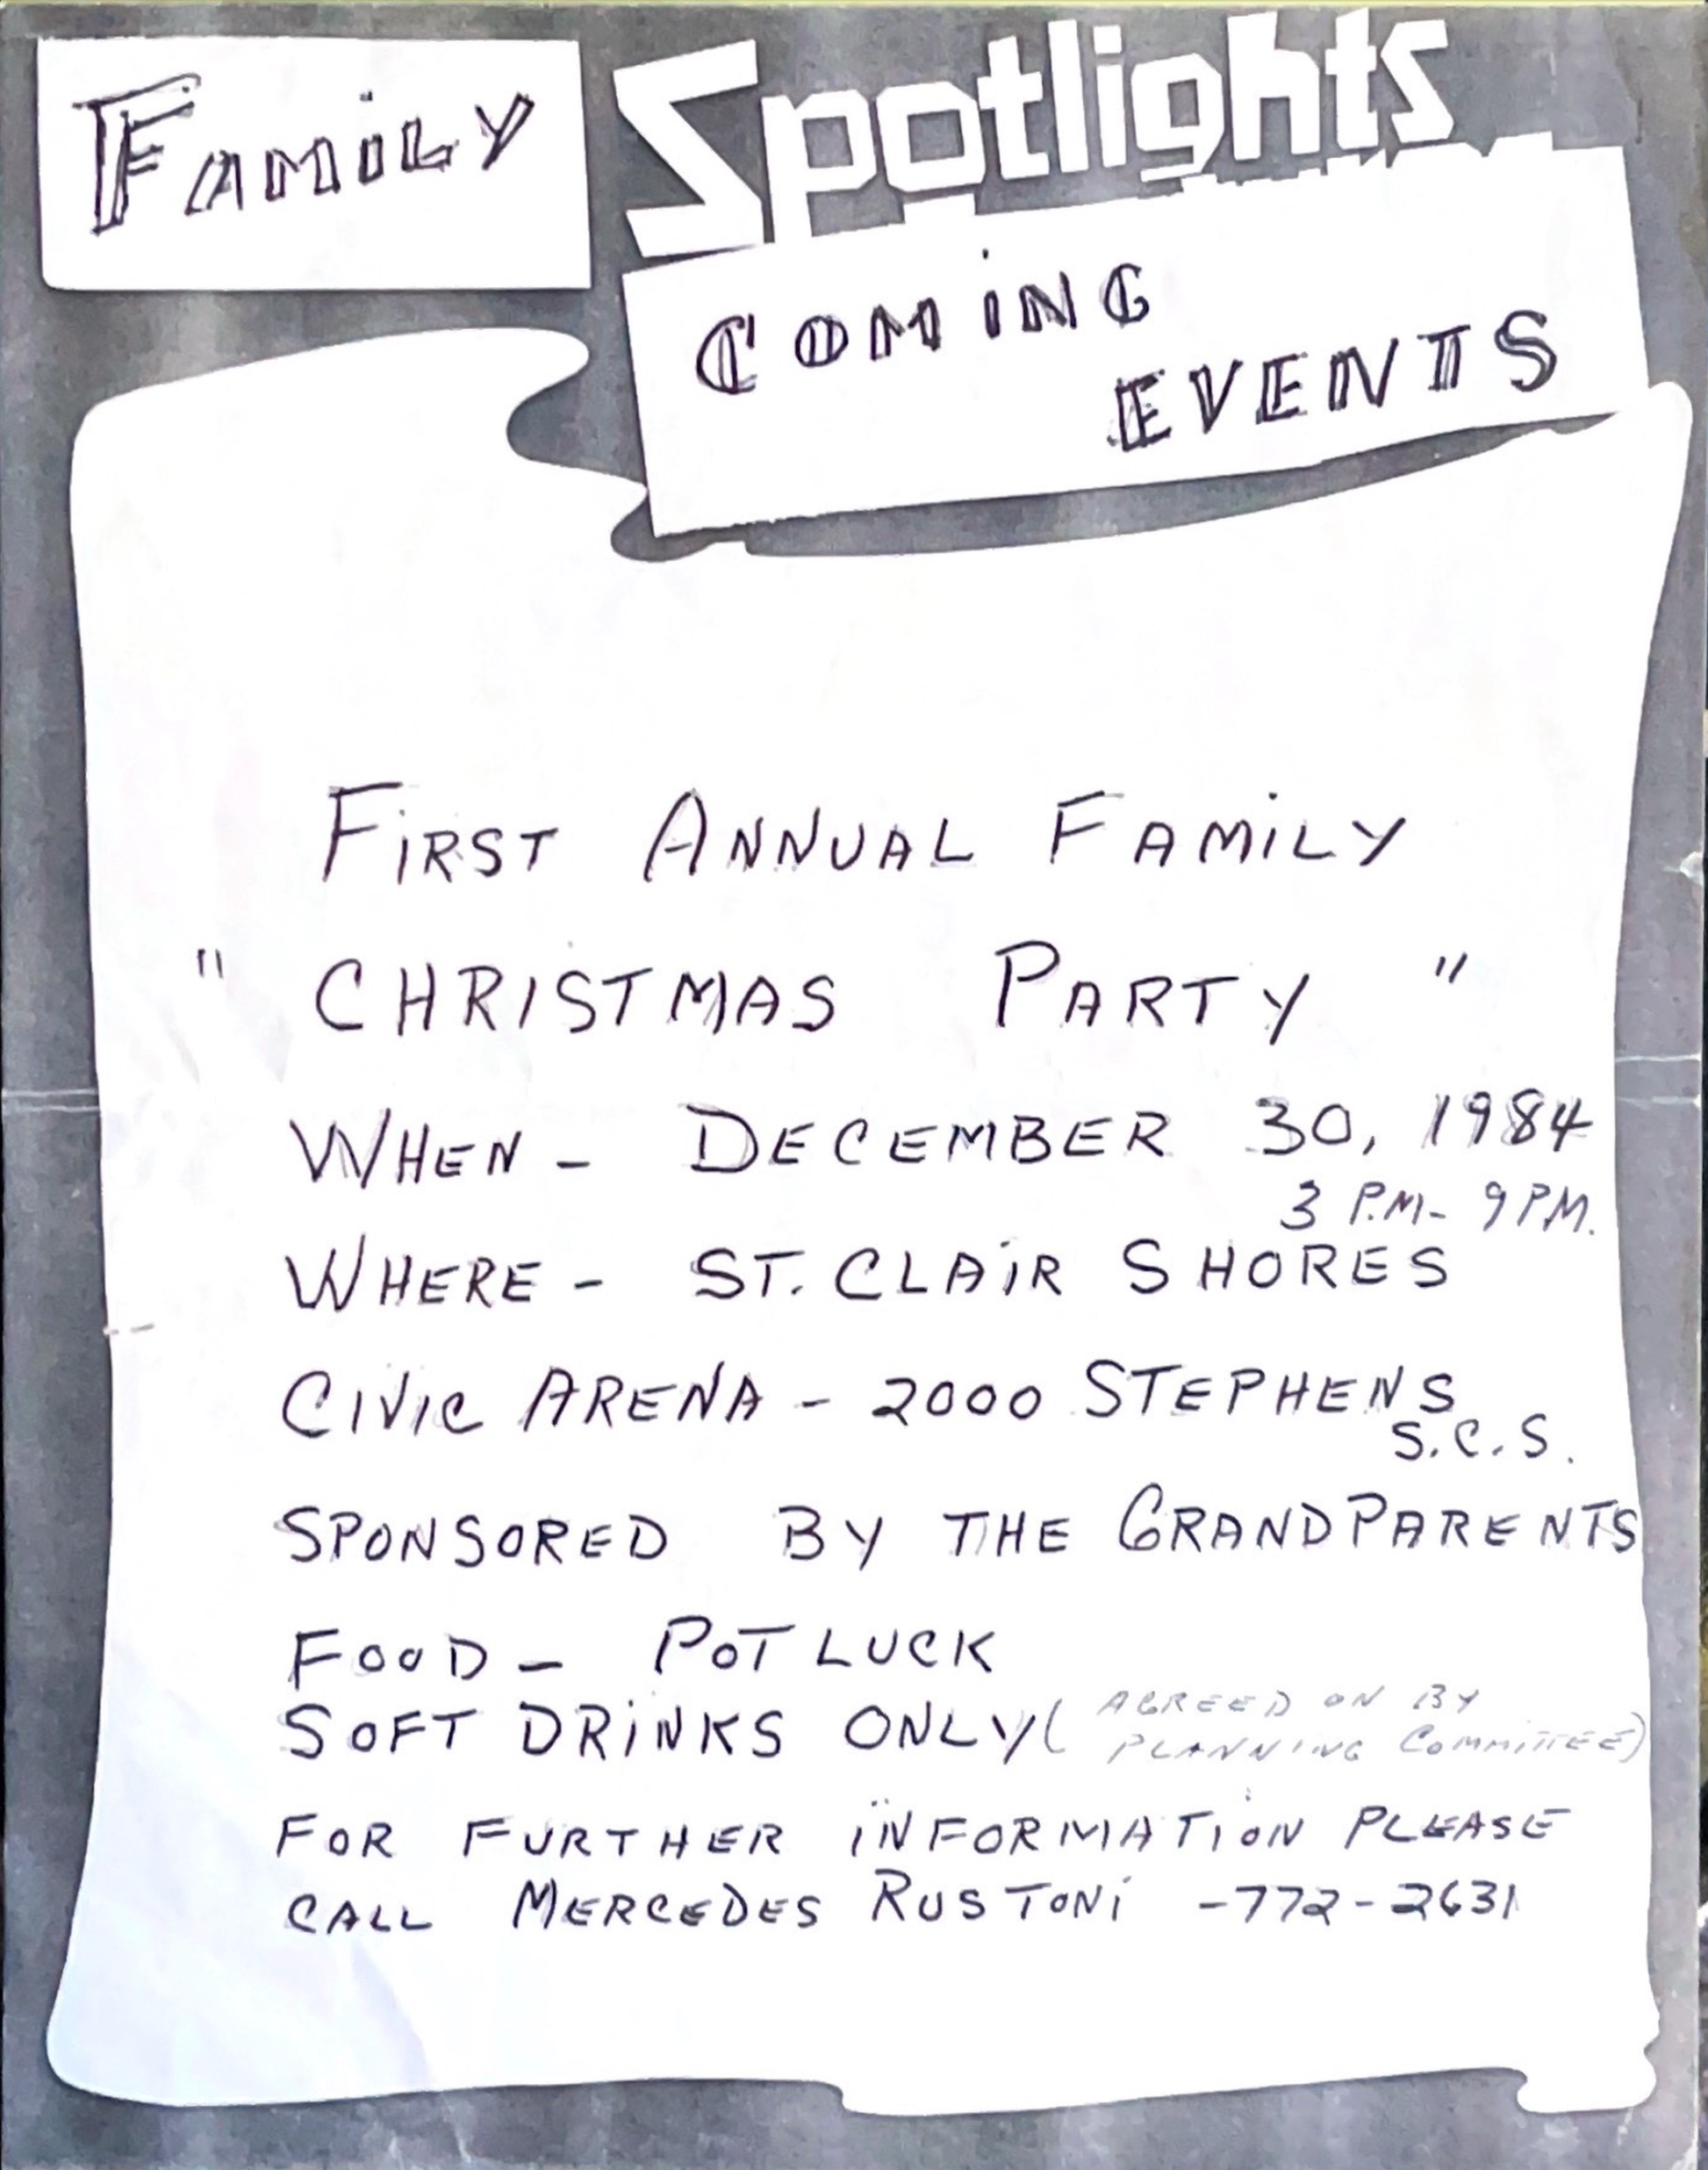 FAMiLY
Spotlights
COMiNG
EVENTS
FiRST ANNUAL FAMiLY
" CHRISTMAS PARTY "
WHEN - DECEMBER 30, 1984
3 P.M- 9 PM.
WHERE - ST. CLAiR SHORES
CiViC ARENA - 2000 STEPHENS
S.C.S.
SPONSORED BY THE GRANDPARENTS
FOOD - POT LUCK
SOFT DRiNKS ONLY (AGREED ON BY
PLANNING COMMITTEE)
FOR FURTHER iNFORMATiON PLEASE
CALL MERCEDES RUSTONi -772-2631